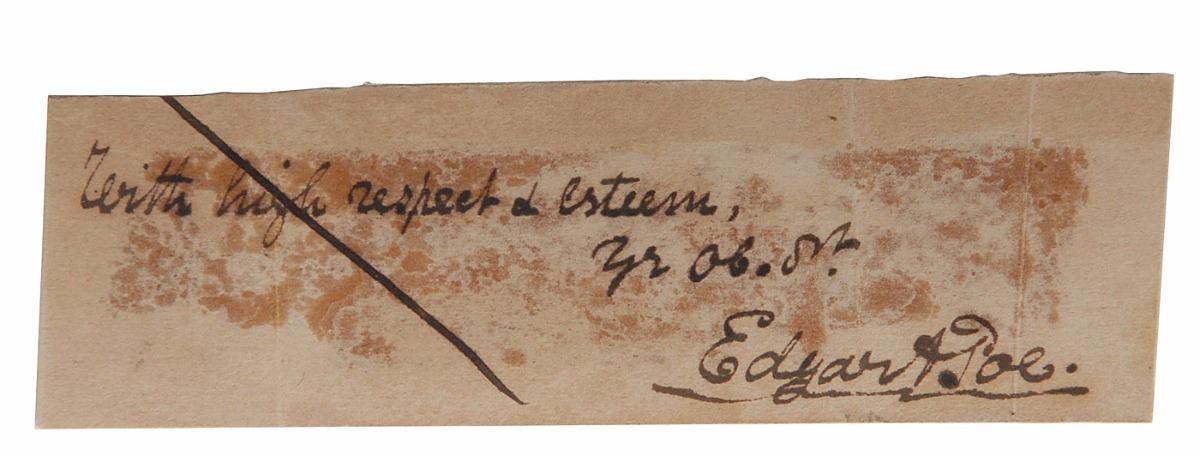 With high respect & esteem,
Yr Ob. St.
Edgar A. Poe.